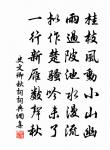 桂枝風動小山幽
雨過陂池水漫流
擬作楚騷吟未了
一行新雁數聲秋
史文卿秋詞詞典網書